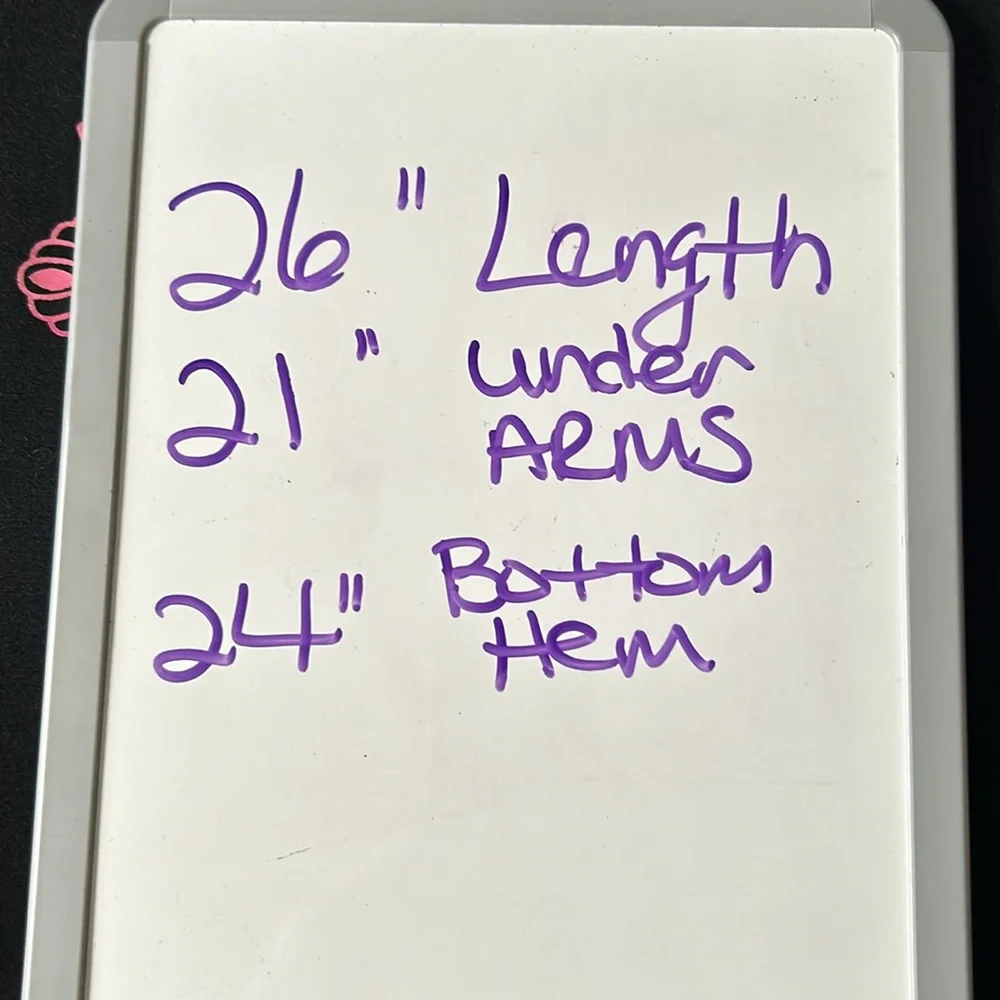 26 " Length
21 " under
ARMS
24" Bottom
Hem